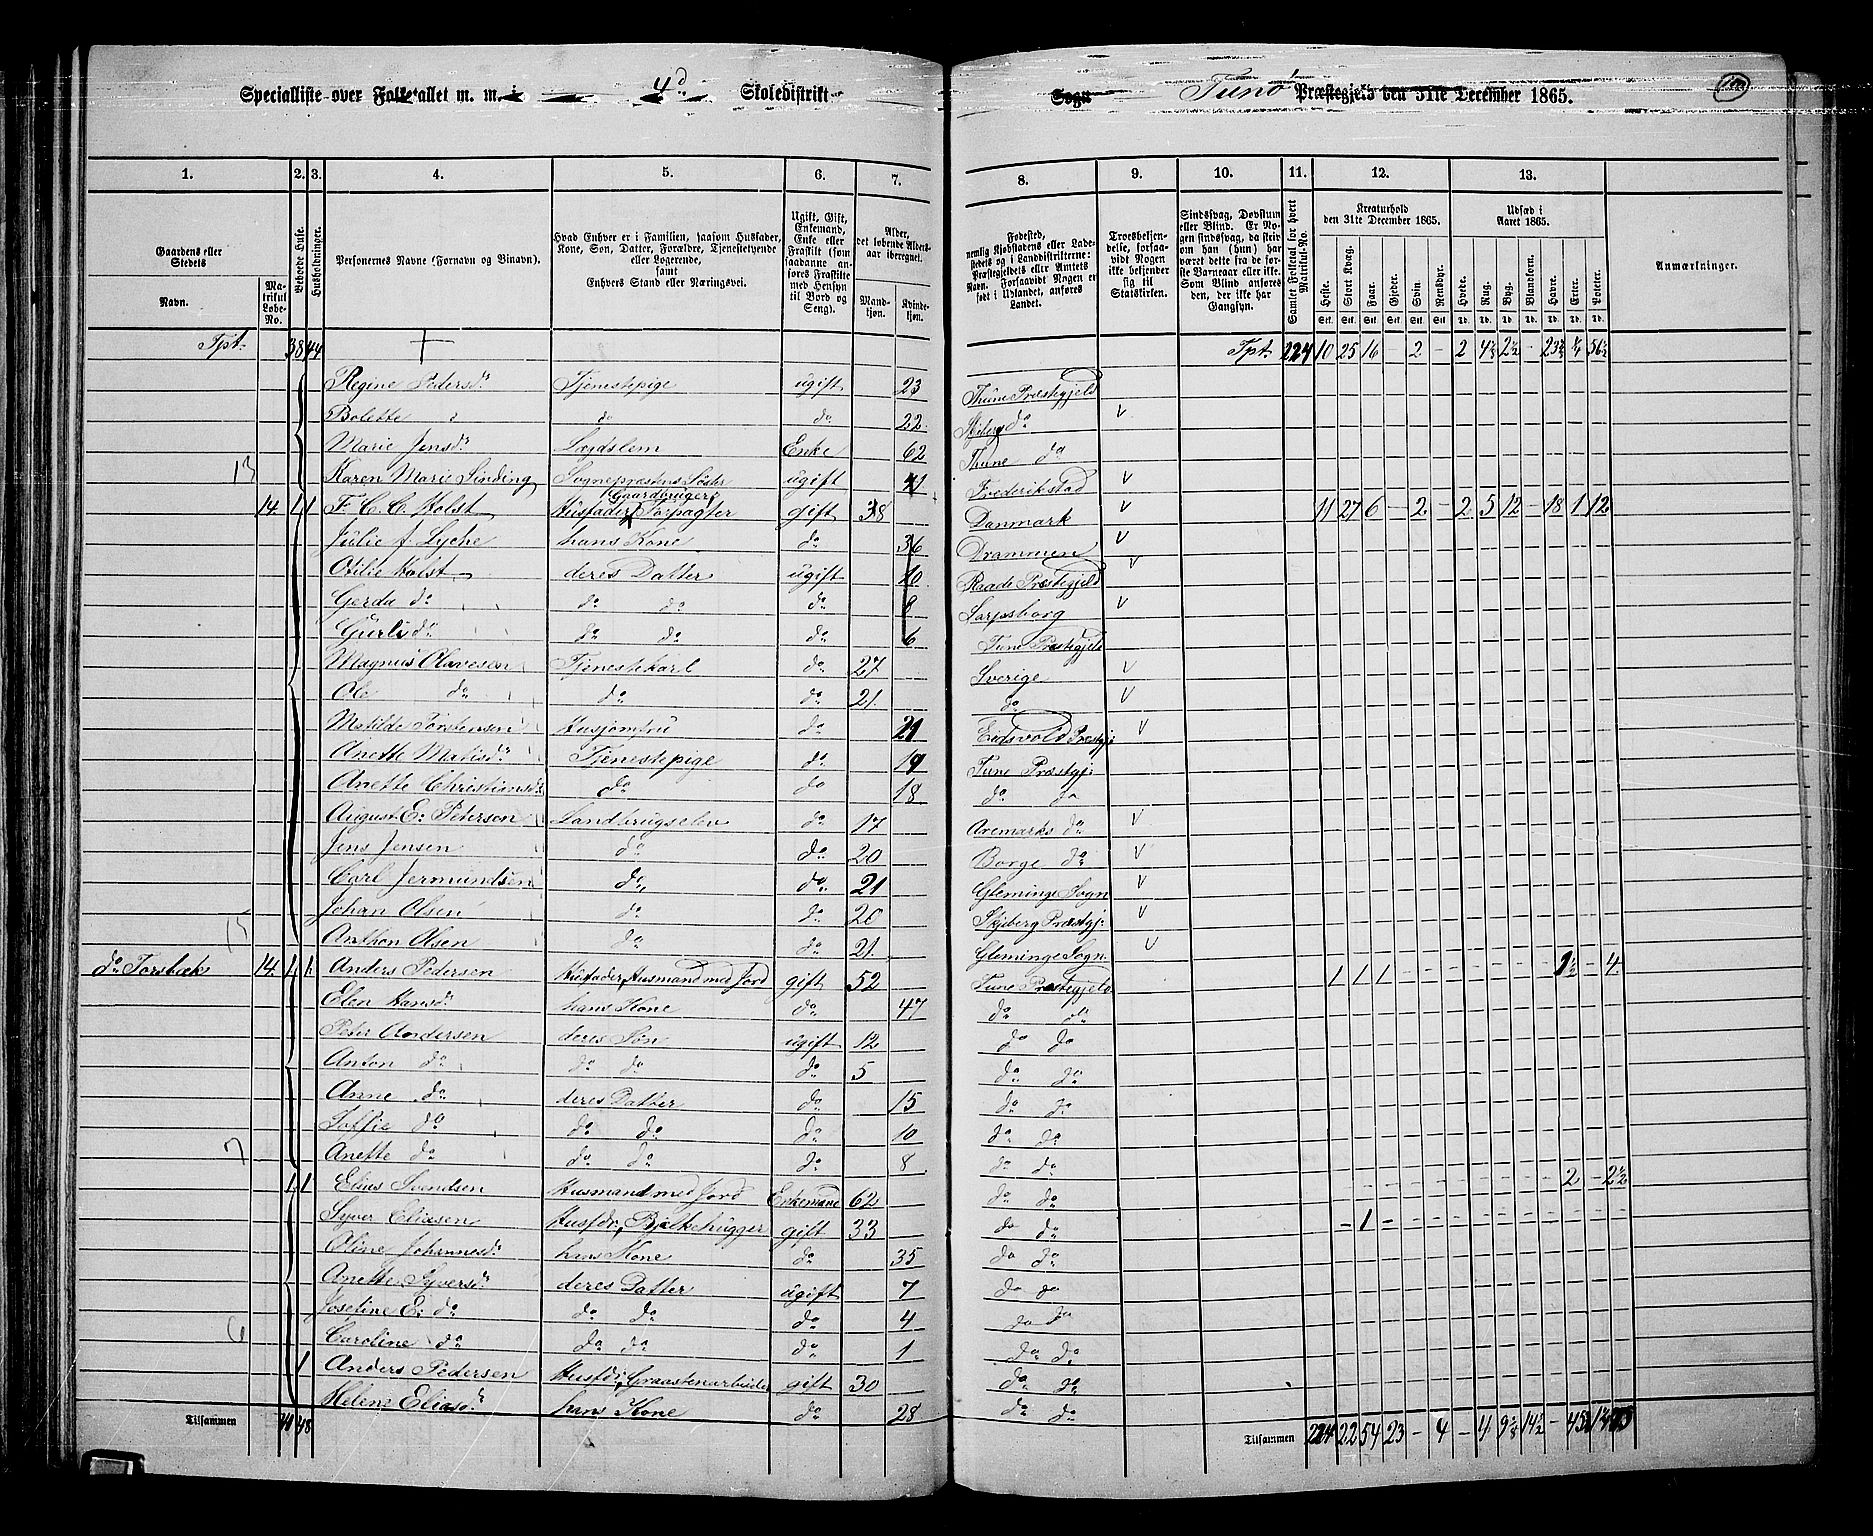 Specialliste over Folketallet m. m. i 4d Skoledistrikt Sogn Tunø Præstegjeld den 31te December 1865.
1. 2. 3. 4. 5. 6. 7. 8. 9. 10. 11. 12. 13.
Gaardens eller Stedets Navn. Matrikul Løbe-No. Beboede Huse. Husholdninger. Personernes Navne (Fornavn og Binavn).
Hvad Enhver er i Familien, saasom Husfader, Kone, Søn, Datter, Forældre, Tjenestetyende eller Logerende, samt Enhvers Stand eller Næringsvei.
Ugift, Gift, Enkemand, Enke eller Fraskilt (som saadanne anføres Fraskilte med Hensyn til Bord og Seng).
Alder, det løbende Alders-aar iberegnet. Mandkjøn. Kvindekjøn.
Fødested, nemlig Kjøbstadens eller Ladestedets og i Landdistrikterne: Præstegjeldets eller Amtets Navn. Forsaavidt Nogen er født i Udlandet, anføres Landet.
Troesbekjendelse, forsaavidt Nogen ikke bekjender sig til Statskirken.
Sindssvag, Døvstum eller Blind. Er Nogen sindssvag, da skriv om han (hun) har været dette fra de første Barneaar eller ikke. Som Blind anføres den, der ikke har Gangsyn.
Samlet Folketal for hvert Matrikul-No.
Kreaturhold den 31te December 1865. Heste. Stort Kvæg. Faar. Gjeder. Svin. Rensdyr.
Udsæd i Aaret 1865. Hvede. Rug. Byg. Blandkorn. Havre. Erter. Poteter.
Anmærkninger.
Tpt. 38 44 Tpt 224 10 25 16 - 2 - 2 4½ 2½ - 23½ ¼ 56½
Regine Pedersdr Tjenestepige ugift 23 Thune Præstegjeld
Bolette do do 22 Skjeberg do
Marie Jensdr Lægdslem Enke 62 Thune do
13 Karen Marie Sinding Sognepræstens Søster ugift 41 Frederikstad
14. 1 1 F. C. C. Holst Husfader, Gaardbruger Forpagter gift 38 Danmark 11 27 6 - 2 - 2 5 12 - 18 1 12
Julie f. Lyche hans Kone do 36 Drammen
Otilie Holst deres Datter ugift 10 Raade Præstegjeld
Gerda do do do do 8 Sarpsborg
Gurli do do do do 6 Tune Præstegjeld
Magnus Olavesen Tjenestekarl do 27 Sverige
Ole do do do 21. do
Matilde Torstensen Husjomfru do 21 Eidsvold Præstgj:
Anette Matisdr Tjenestepige do 19 Tune Præstgj:
Anette Christiansdr do do 18 do do
August E: Peterson Landbrugselev do 17 Aremarks do
Jens Jensen do do 20 Borge do
Carl Jermundsen do do 21 Gleminge Sogn
Johan Olsen do do 20 Skjeberg Præstgj:
15 Anthon Olsen do do 21. Gleminge Sogn
do Torsbæk 14. 1 1. Anders Pedersen Husfader, Husmand med Jord gift 52 Tune Præstegjeld 1 1 1 - - - - - - - 1½ - 4
Elen Hansdr hans Kone do 47 do do
Peter Andersen deres Søn ugift 12 do do
Anton do do do do 5 do do
Anne do deres Datter do 15 do do
Soffie do do do do 10 do do
7 Anette do do do do 8 do do
1 1 Elias Svendsen Husmand med Jord Enkemand 62 do do 2 - 2½
Syver Eliasen Husfdr, Bjelkehugger gift 33 do do - 1 -
Oline Johannesdr hans Kone do 35 do do
Anette Syversdr deres Datter ugift 7 do do
Josefine E: do do do do 4 do do
6 Caroline do do do do 1 do do
1 Anders Pedersen Husfdr, Graastenarbeider gift 30 do do
Helene Eliasdr hans Kone do 28 do do
Tilsammen 48 Tilsammen 224 22 54 23 - 4 - 4